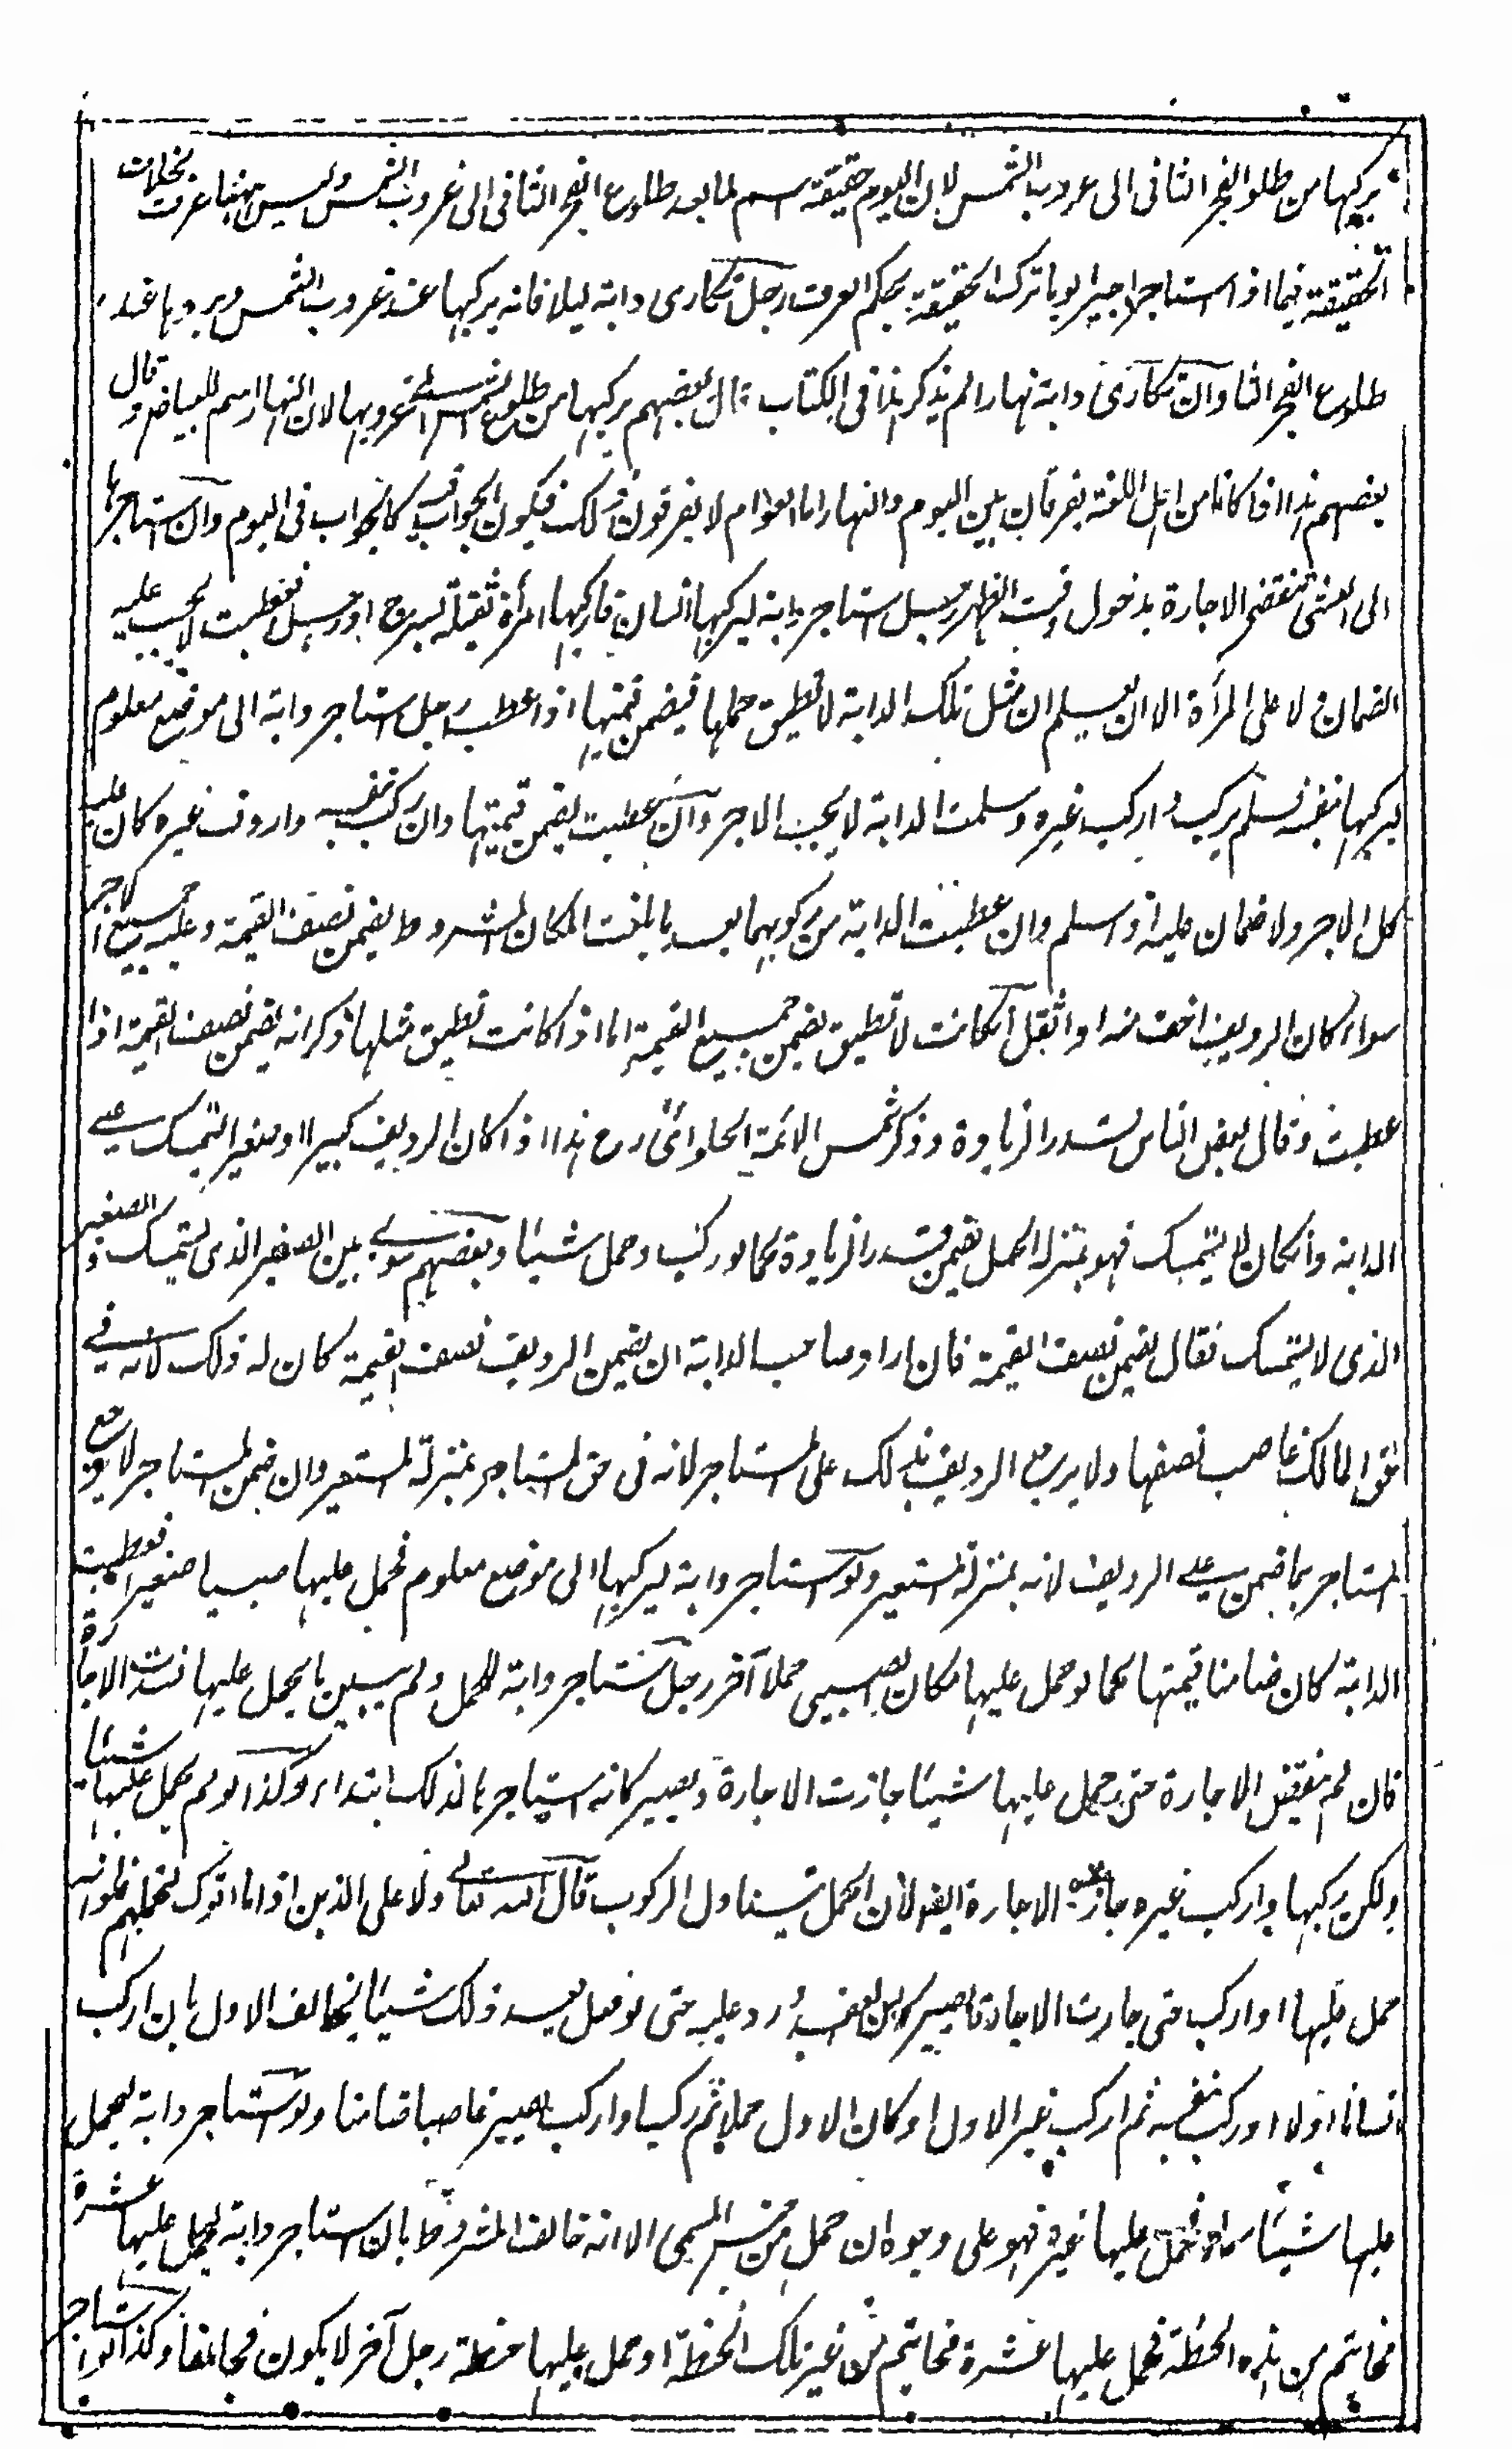 يركبها من طلوع الفجر الثانى الى غروب الشمس لان اليوم حقيقة اسم لما بعد طلوع الفجر الثانى الى غروب الشمس وليس ههنا عرف بخلاف
الحقيقة فيما اذا استاجر اجيرا يوما ترك الحقيقة بحكم العرف رجل تكارى دابة ليلا فانه يركبها عند غروب الشمس ويردها عند
طلوع الفجر الثانى وان تكارى دابة نهارا لم يذكر هذا فى الكتاب قال بعضهم يركبها من طلوع الشمس الى غروبها لان النهار اسم للبياض وقال
بعضهم هذا اذا كانا من اهل اللغة يفرقان بين اليوم والنهار اما العوام لا يفرقون ذلك فيكون الجواب فيه كالجواب فى اليوم وان استاجرها
الى العشى تنقضى الاجارة بدخول وقت الظهر رجل استاجر دابة ليركبها انسان فاركبها امرأة ثقيلة بسرج او رحل فعطبت لا يجب عليه
الضمان ولا على المرأة الا ان يعلم ان مثل تلك الدابة لا تطيق حملها فيضمن قيمتها اذا عطب رجل استاجر دابة الى موضع معلوم
ليركبها بنفسه فلم يركب و اركب غيره وسلمت الدابة لا يجب الاجر وان عطبت يضمن قيمتها وان ركب بنفسه واردف غيره كان عليه
كل الاجر ولا ضمان عليه اذا سلم وان عطبت الدابة من ركوبهما بعد ما بلغت المكان المشروط يضمن نصف القيمة وعليه جميع الاجر
سواء كان الرديف اخف منه او اثقل ان كانت لا تطيق يضمن جميع القيمة اما اذا كانت تطيق مثلها ذكر انه يضمن نصف القيمة اذا
عطبت وقال بعض الناس بقدر الزيادة وذكر شمس الائمة الحلوائى رح هذا اذا كان الرديف كبيرا او صغيرا يتمسك على
الدابة وان كان لا يتمسك فهو بمنزلة الحمل يضمن قدر الزيادة كما لو ركب وحمل شيئا وبعضهم سوى بين الصغير الذى يتمسك والصغير
الذى لا يتمسك فقال يضمن نصف القيمة فان اراد صاحب الدابة ان يضمن الرديف نصف القيمة كان له ذلك لانه فى
حق المالك غاصب نصفها ولا يرجع الرديف بذلك على المستاجر لانه فى حق المستاجر بمنزلة المستعير وان ضمن المستاجر لا يرجع
المستاجر بما ضمن على الرديف لانه بمنزلة المستعير ولو استاجر دابة ليركبها الى موضع معلوم فحمل عليها صبيا صغيرا فعطبت
الدابة كان ضامنا قيمتها كما لو حمل عليها مكان الصبى حملا آخر رجل استاجر دابة للحمل ولم يبين ما يحمل عليها فسدت الاجارة
فان لم ينقض الاجارة حتى حمل عليها شيئا جازت الاجارة ويصير كانه استاجرها لذلك ابتداء وكذا لو لم يحمل عليها شيئا
ولكن ركبها او اركب غيره جازت الاجارة ايضا لان الحمل يتناول الركوب قال الله تعالى ولا على الذين اذا ما اتوك لتحملهم فلو انه
حمل عليها او اركب حتى جازت الاجارة يصير كان العقد ورد عليه حتى لو فعل بعد ذلك شيئا يخالف الاول بان اركب
انسانا اولا او ركب بنفسه ثم اركب غير الاول او كان الاول حملا ثم ركب او اركب يصير غاصبا ضامنا ولو استاجر دابة ليحمل
عليها شيئا سماه فحمل عليها غيره فهو على وجوه ان حمل من جنس المسمى الا انه خالف المشروط بان استاجر دابة ليحمل عليها عشرة
مخاتيم من هذه الحنطة فحمل عليها عشرة مخاتيم من غير تلك الحنطة او حمل عليها حنطة رجل آخر لا يكون مخالفا وكذا لو استاجر